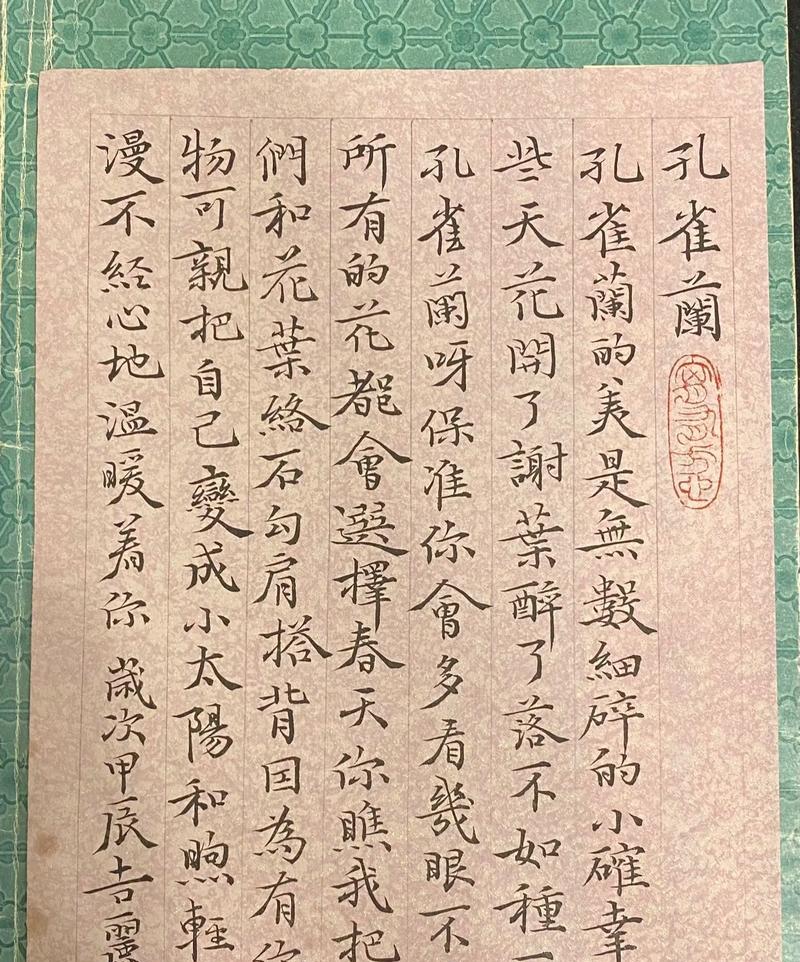 孔雀蘭
孔雀蘭的美是無數細碎的小確幸
些天花開了謝葉醉了落不如種
孔雀蘭呀保准你會多看幾眼不
所有的花都會選擇春天你瞧我把
們和花葉絡石勾肩搭背因為有你
物可親把自己變成小太陽和煦輕
漫不經心地溫暖着你 歲次甲辰吉